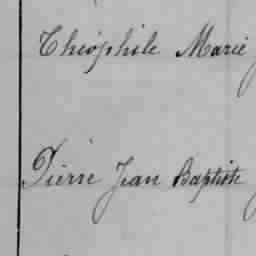 Théophile Marie
Pierre Jean Baptiste